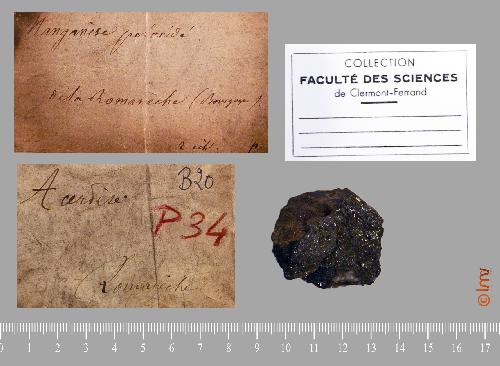 Manganèse peroxidé
de la Romanèche (Bourgogne)
COLLECTION
FACULTÉ DES SCIENCES
de Clermont-Ferrand
B20
P34
Romanèche
© lmv
0 1 2 3 4 5 6 7 8 9 10 11 12 13 14 15 16 17